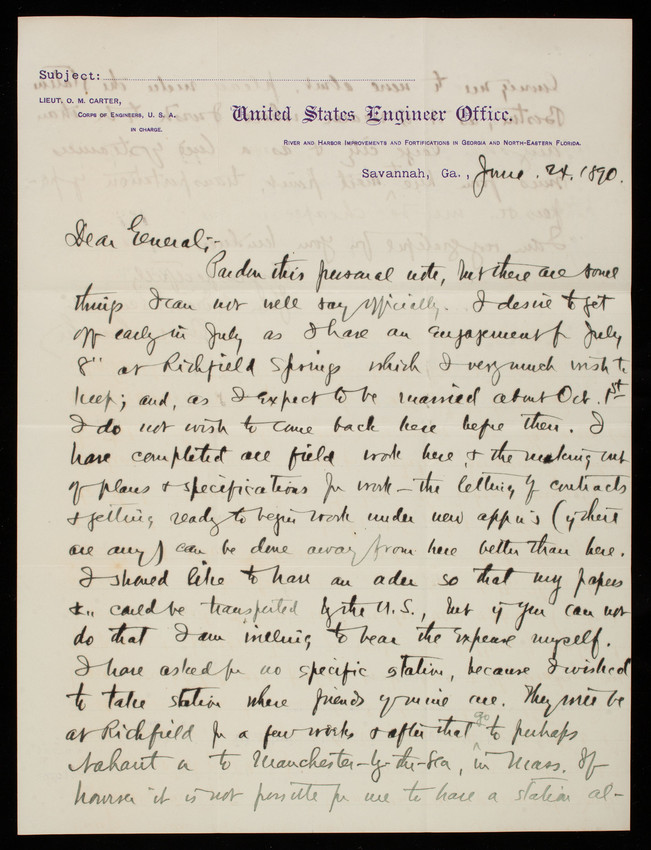 Subject:
LIEUT. O. M. CARTER,
CORPS OF ENGINEERS, U. S. A.
IN CHARGE.
United States Engineer Office.
RIVER AND HARBOR IMPROVEMENTS AND FORTIFICATIONS IN GEORGIA AND NORTH-EASTERN FLORIDA.
Savannah, Ga., June 24. 1890.
Dear General;-
Pardon this personal note, but there are some
things I can not well say officially. I desire to get
off early in July as I have an engagement for July
8" at Richfield Springs which I very much wish to
keep; and, as I expect to be married about Oct. 1st
I do not wish to come back here before then. I
have completed all field work here, & the making out
of plans & specifications for work - the letting of contracts
& getting ready to begin work under new app'n's (if there
are any) can be done away from here better than here.
I should like to have an order so that my papers
&c could be transported by the U.S., but if you can not
do that I am willing to bear the expense myself.
I have asked for no specific station, because I wished
to take station where friends of mine are. They will be
at Richfield for a few weeks & after that go to perhaps
Nahant or to Manchester-by-the-Sea, in Mass. If
however it is not possible for me to have a station al-